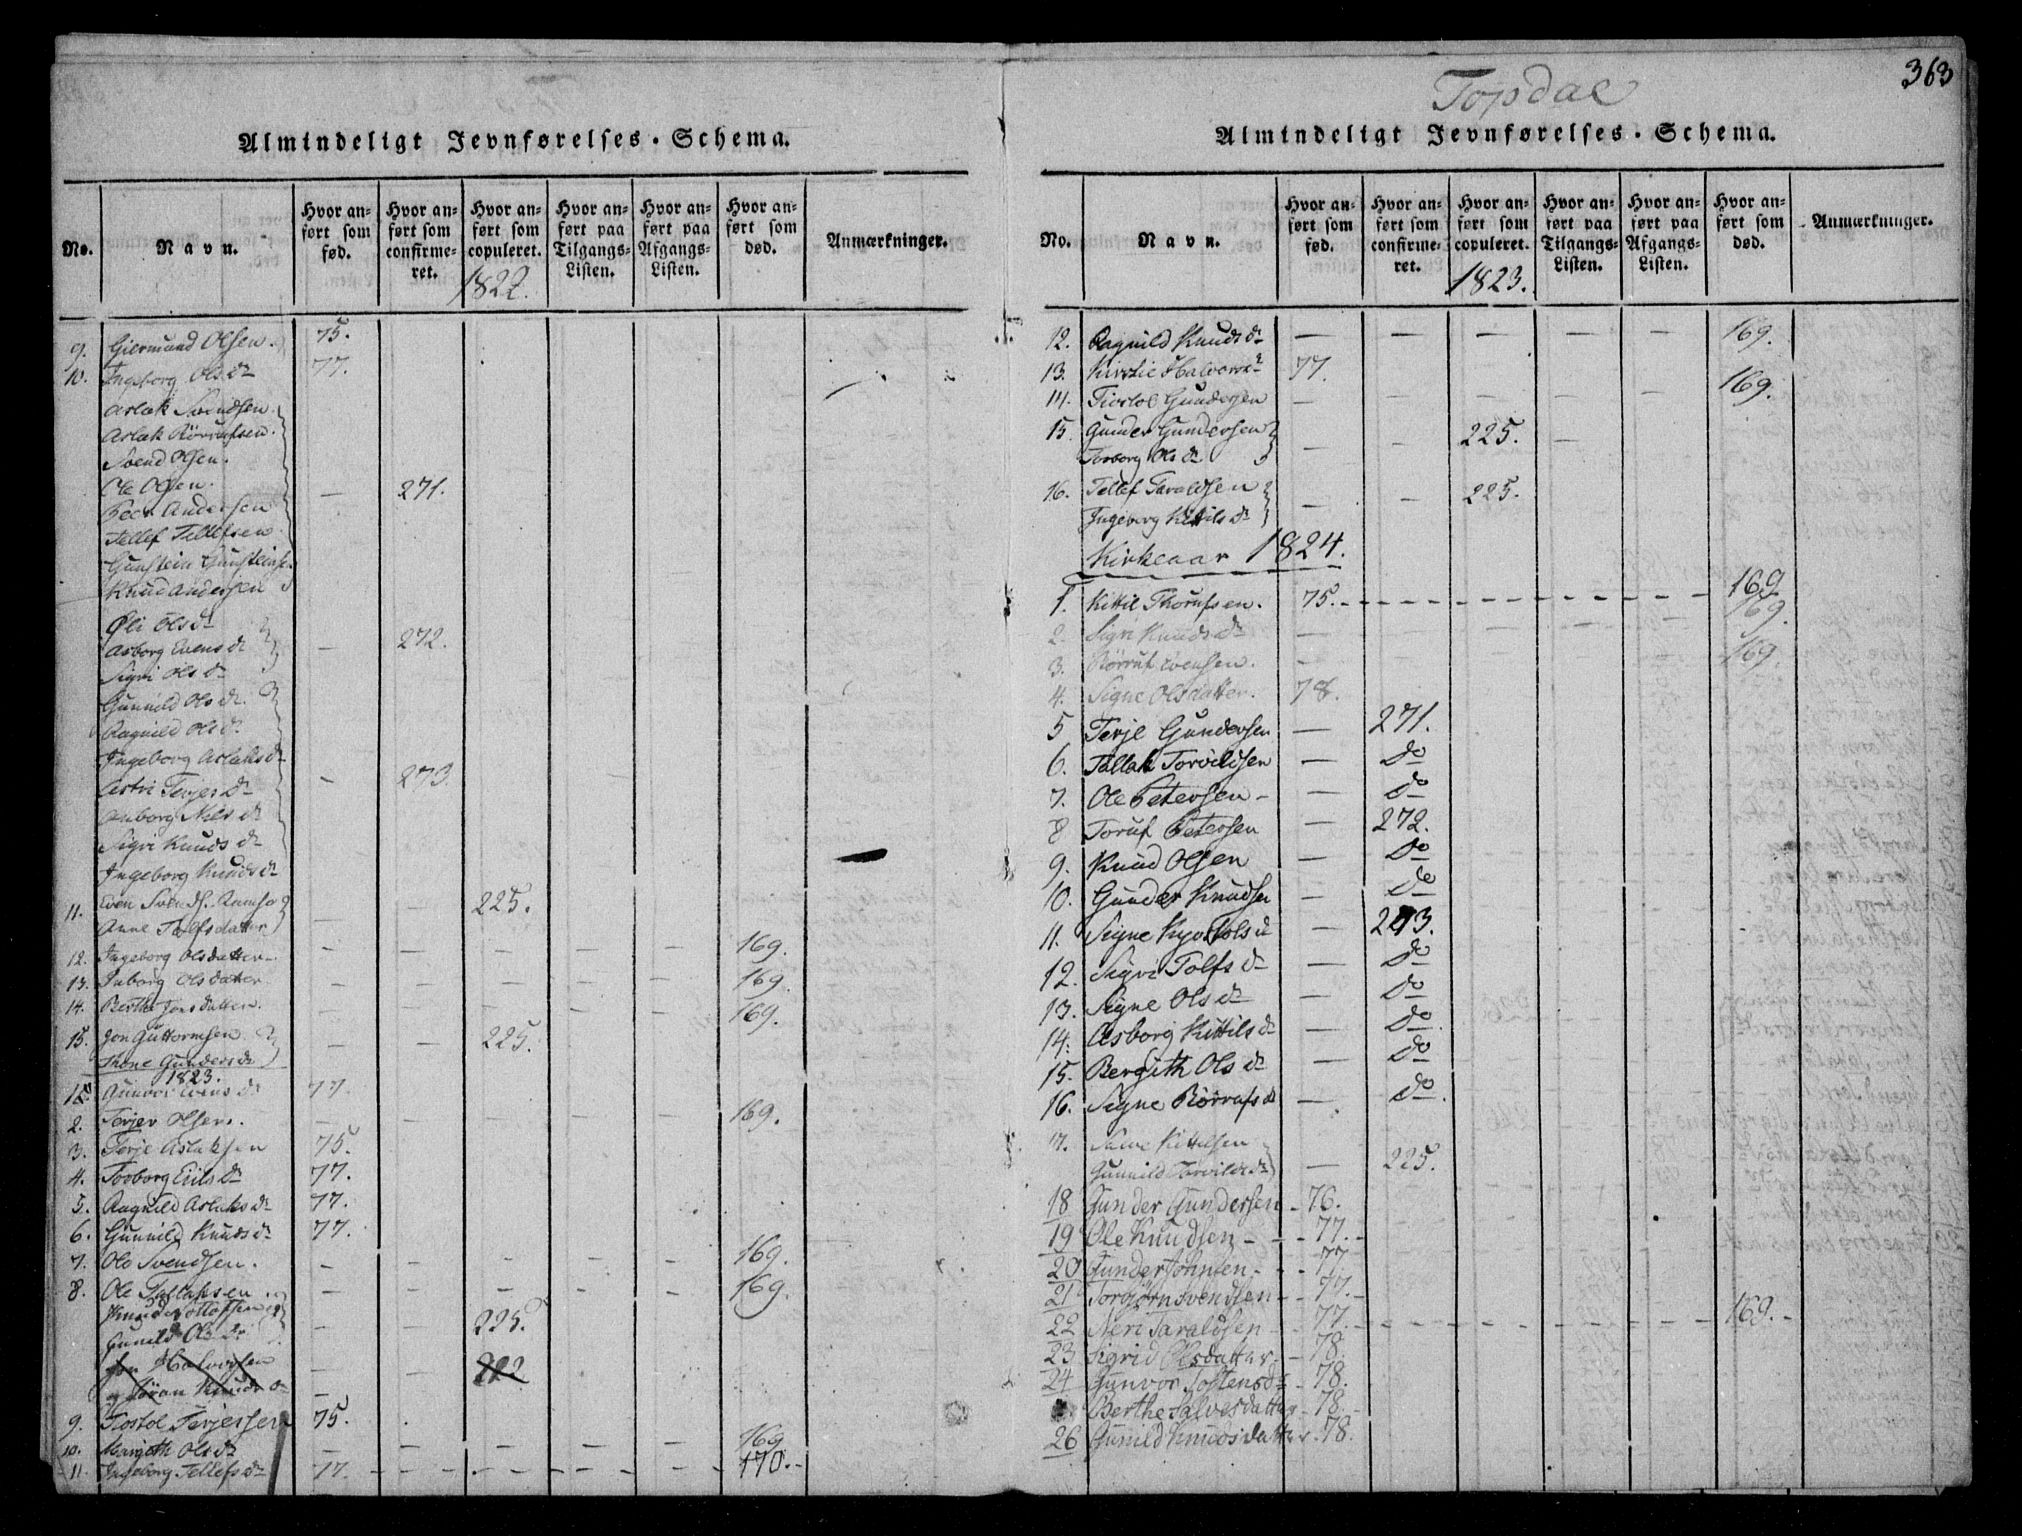 Almindeligt Jevnførelses-Schema.
No. | Navn. | Hvor anført som fød. | Hvor anført som confirmeret. | Hvor anført som copuleret. | Hvor anført paa Tilgangs-Listen. | Hvor anført paa Afgangs-Listen. | Hvor anført som død. | Anmærkninger.
1822.
9. Giermund Olsen. 75.
10. Ingeborg Ols dr 77.
Aslak Svendsen.
Aslak Rörrufsen.
Svend Olsen.
Ole Olsen. — 271.
Peer Andersen
Tellef Tellefsen
Gunstein Gunsteins.
Knud Andersen
Øli Ols dr
Asborg Evens dr — 272.
Sigri Ols dr
Gunnild Ols dr
Ragnild Ols dr
Ingeborg Aslaks dr
Astri Terjes dr — 273.
Anborg Nils dr
Sigri Knuds dr
Ingeborg Knuds dr
11. Even Svends. — — 225.
Anne Tolfsdatter
12. Ingeborg Olsdatter — — — — — 169.
13. Inborg Olsdatter — — — — — 169.
14. Berthe Jonsdatter. — — — — — 169.
15. Jon Guttormsen — — 225.
Thone Gunders dr
1823.
1. Gunvor Evens dr 77.
2. Terjer Olsen. — — — — — 169.
3. Terje Aslaksen 75.
4. Torborg Eriks dr 77.
5. Ragnild Aslaks dr 77.
6. Gunnild Knuds dr 77.
7. Ole Svendsen. — — — — — 169.
8. Ole Tallaksen — — — — — 169.
Knud Tellefsen
Gunild Ols dr — — 225.
Jon Halvorsen — — 222
og Jöran Knuds dr —
9. Tiostol Terjessen 75.
10. Margith Ols dr — — — — — 169
11. Ingeborg Tellefs dr 77. - - - - - 170.-
Topdal
363
Almindeligt Jevnførelses-Schema.
No. | Navn. | Hvor anført som fød. | Hvor anført som confirmeret. | Hvor anført som copuleret. | Hvor anført paa Tilgangs-Listen. | Hvor anført paa Afgangs-Listen. | Hvor anført som død. | Anmærkninger.
1823.
12. Ragnild Knuds dr — — — — — 169.
13. Kirstie Halvors dr 77.
14. Tiostol Gundersen — — — — — 169.
15. Gunder Gundersen — — 225. —
Torborg Ols dr
16. Tellef Taraldsen — — 225.
Ingeborg Kittils dr
Kirkeaar 1824.
1. Kittil Thorufsen. 75. - - - - - 169
2. Sigri Knuds dr — 169.
3. Rörruf Evensen. — 169.
4. Signe Olsdatter. 78.
5 Terje Gundersen — 271.
6. Tallak Torvildsen — do
7. Ole Petersen — — do
8 Toruf Petersen — 272.
9. Knud Olsen — do
10. Gunder Knudsen — do
11. Signe Kjostols d — 273.
12. Sigri Tolfs dr — do
13. Signe Ols dr — do
14. Asborg Kittils dr — do
15. Bergith Ols dr — do
16. Signe Rörrufs d — do.
17. Salve Kittelsen
Gunnild Torvilds dr — 225.
18 Gunder Gundersen - 76.
19 Ole Knudsen - - 77. -
20 Gunder Johnsen - - 77
21 Torbjörn Svendsen - - 77. -
22 Neri Taraldsen - 77. - - - - - 169. -
23 Sigrid Olsdatter - - 78.
24 Gunvor Tostensdr - 78.
Berthe Salvesdatter - 78. -
26 Gunild Knudsdatter. 78.